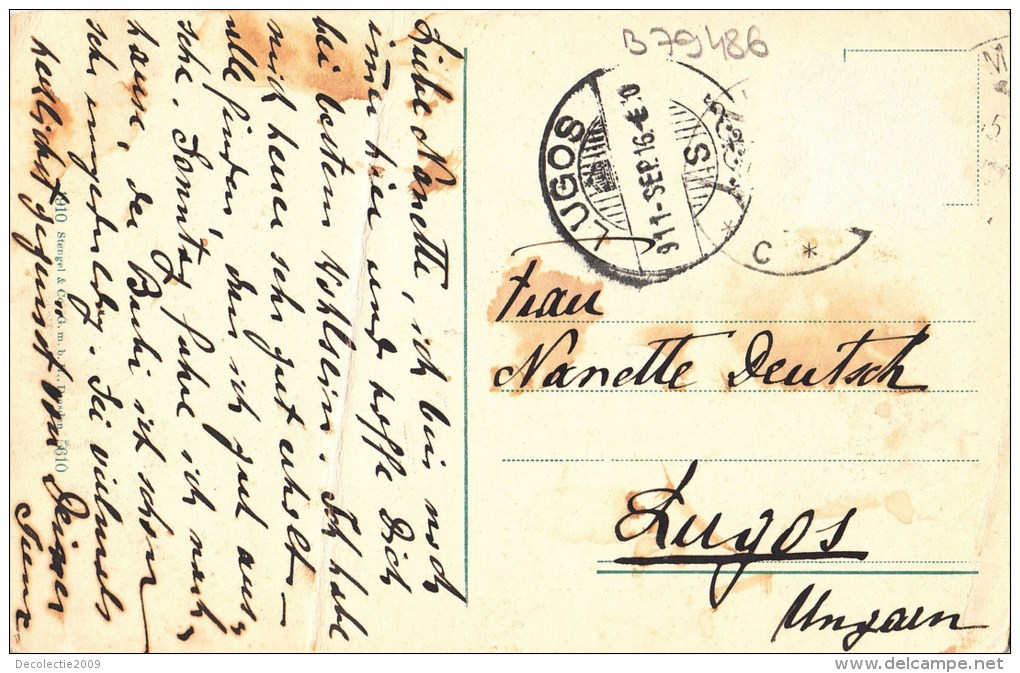 Liebe Nanette, ich bin noch
immer hier und hoffe Dich
bei bestem Wohlsein. Ich habe
mich heuer sehr gut erholt
alle finden, dass ich gut aus-
sehe. Sonntag fahre ich nach
hause, der Bubi ist schon
sehr ungeduldig. Sei vielmals
herzlichst gegrüsst von Deiner
1910 Stengel & Co., G. m. b. H., Dresden 5610
B 79486
LUGOS
911 SEP. 16
C *
Frau
Nanette Deutsch
Lugos
Ungarn
Decolectie2009
www.delcampe.net